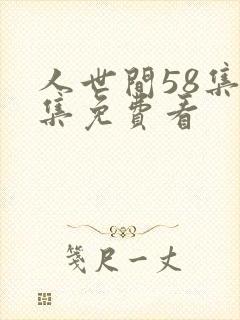 人世間58集
集免費看
箋尺一丈